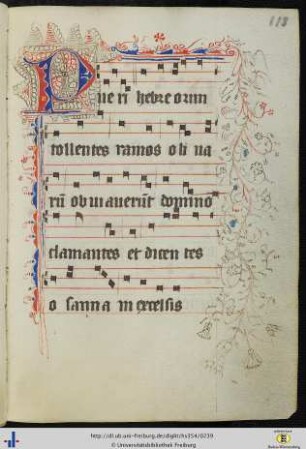 118
Pue ri hebre orum
tollentes ramos oli ua
rū obuiauerūt domino
clamantes et dicen tes
o sanna in excelsis
http://dl.ub.uni-freiburg.de/diglit/hs1154/0239
© Universitätsbibliothek Freiburg